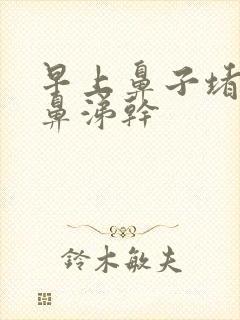 早上鼻子堵
鼻涕幹
鈴木敏夫